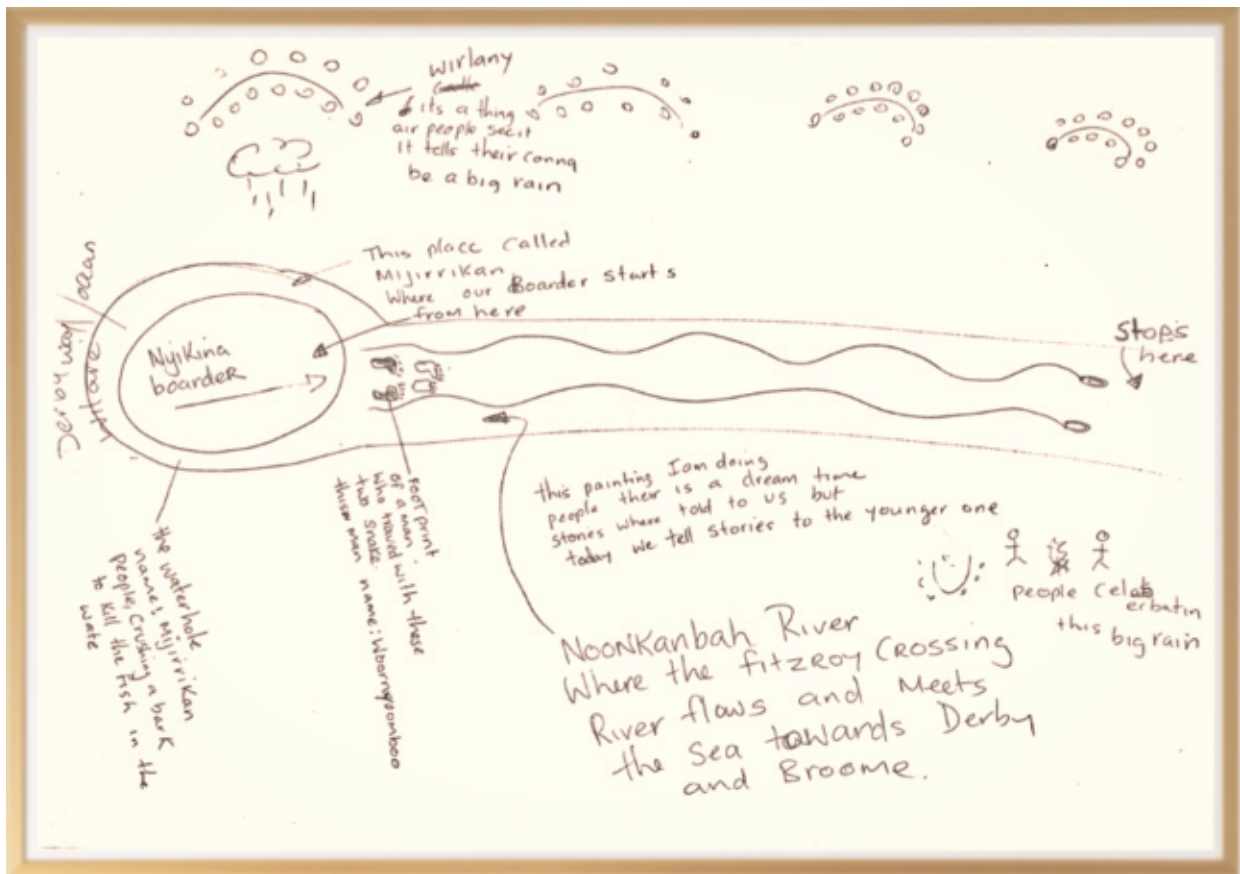 wirlany
its a thing
air people see it
It tells their conna
be a big rain
This place called
Mijirrikan
Where our Boarder starts
from here
Derby way / ocean
Nyikina
boardeR
Stop's
here
the waterhole
name: Mijirrikan
people, Crushing a bark
to kill the fish in the
wate
FOOT print
of a man
who traved with these
two snake.
this man name: Woorny
this painting I am doing
people their is a dream time
stories where told to us but
today we tell stories to the younger one
people Celeb
erbatin
this big rain
NOONKANBAH RIVER
Where the fitzroy CROSSING
River flows and Meets
the Sea towards Derby
and Broome.